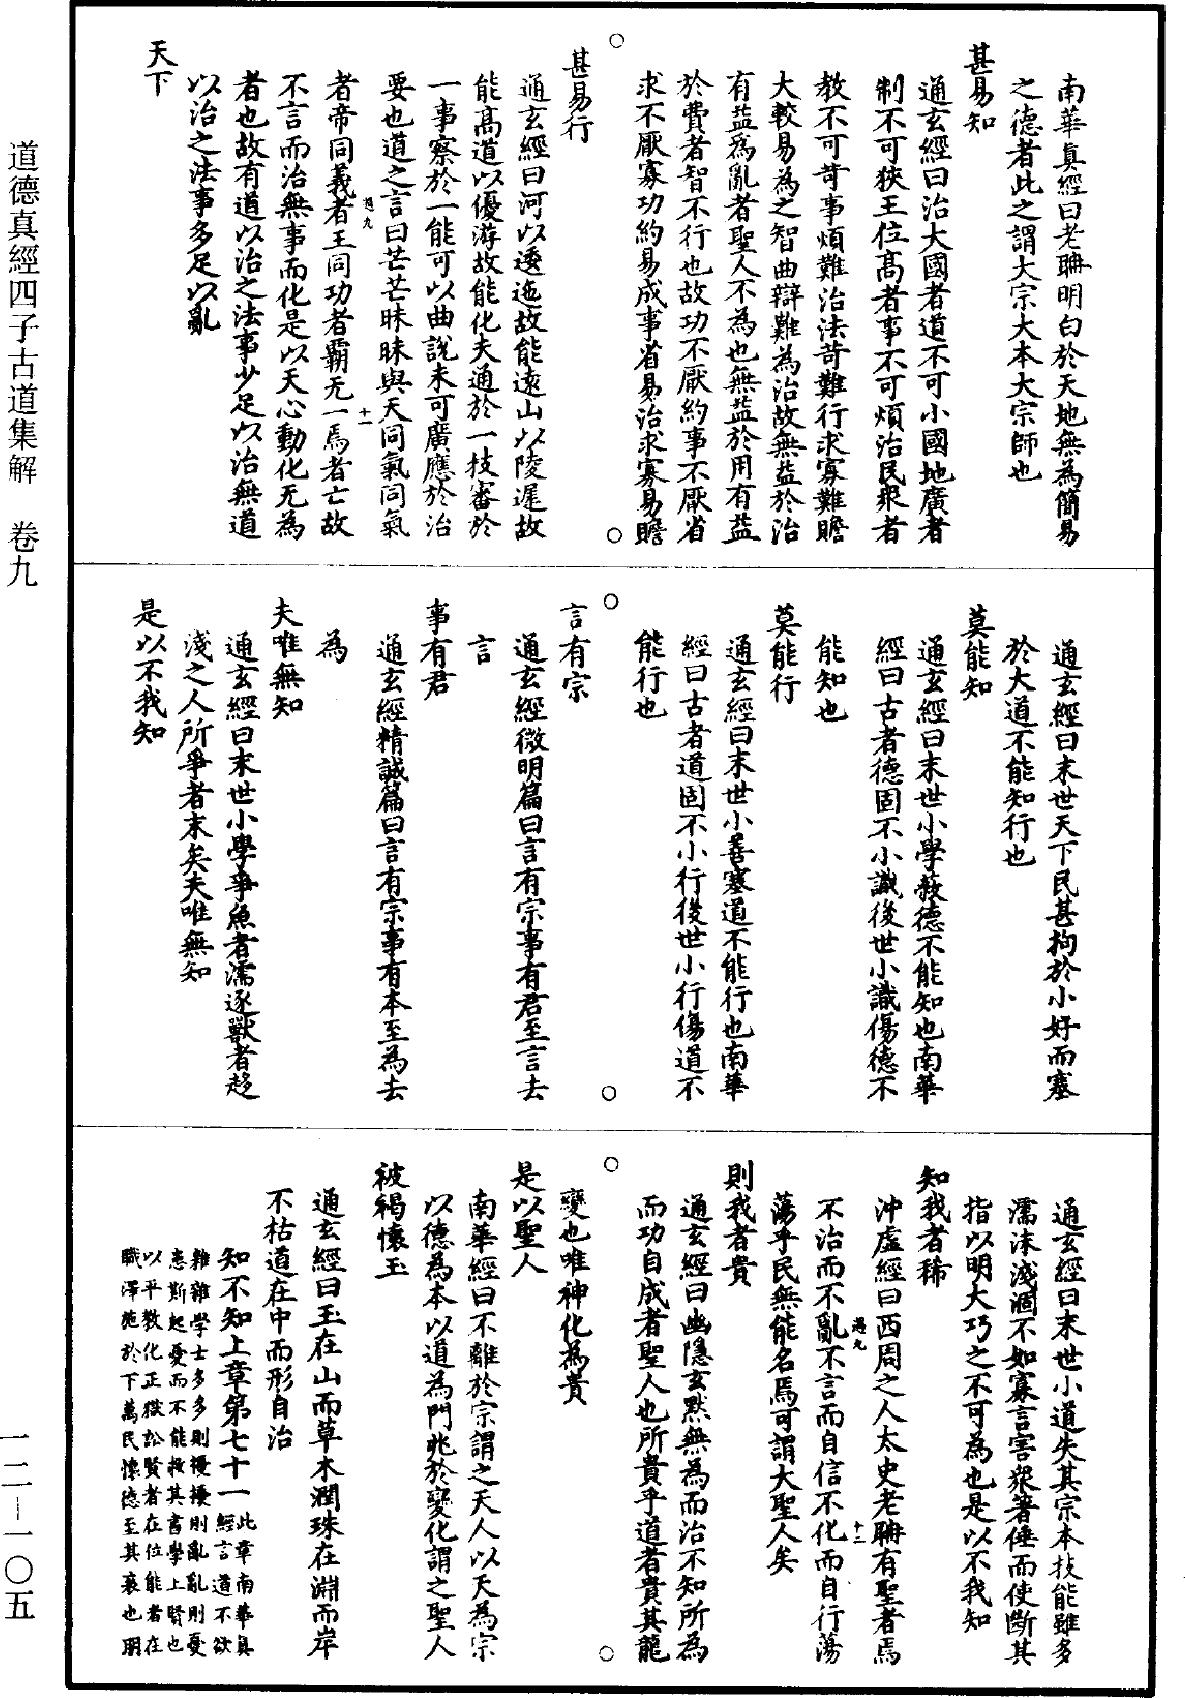 道德真經四子古道集解　卷九
一二－一〇五
南華真經曰老聃明白於天地無為簡易
之德者此之謂大宗大本大宗師也
甚易知
通玄經曰治大國者道不可小國地廣者
制不可狹王位高者事不可煩治民眾者
教不可苛事煩難治法苛難行求寡難贍
大較易為之智曲辯難為治故無益於治
有益為亂者聖人不為也無益於用有益
於費者智不行也故功不厭約事不厭省
求不厭寡功約易成事省易治求寡易贍
甚易行
通玄經曰河以逶迤故能遠山以陵遲故
能高道以優游故能化夫通於一技審於
一事察於一能可以曲說未可廣應於治
要也道之言曰芒芒昧昧與天同氣同氣
者帝同義者王同功者霸无一焉者亡故
過九
十一
不言而治無事而化是以天心動化无為
者也故有道以治之法事少足以治無道
以治之法事多足以亂
天下
通玄經曰末世天下民甚拘於小好而塞
於大道不能知行也
莫能知
通玄經曰末世小學蔽德不能知也南華
經曰古者德固不小識後世小識傷德不
能知也
莫能行
通玄經曰末世小善塞道不能行也南華
經曰古者道固不小行後世小行傷道不
能行也
言有宗
通玄經微明篇曰言有宗事有君至言去
言
事有君
通玄經精誠篇曰言有宗事有本至為去
為
夫唯無知
通玄經曰末世小學爭魚者濡逐獸者趍
淺之人所爭者末矣夫唯無知
是以不我知
通玄經曰末世小道失其宗本技能雖多
濡沫淺涸不如寡言害眾著倕而使斷其
指以明大巧之不可為也是以不我知
知我者稀
沖虛經曰西周之人太史老聃有聖者焉
不治而不亂不言而自信不化而自行蕩
過九
十二
蕩乎民無能名焉可謂大聖人矣
則我者貴
通玄經曰幽隱玄默無為而治不知所為
而功自成者聖人也所貴乎道者貴其龍
變也唯神化為貴
是以聖人
南華經曰不離於宗謂之天人以天為宗
以德為本以道為門兆於變化謂之聖人
被褐懷玉
通玄經曰玉在山而草木潤珠在淵而岸
不枯道在中而形自治
知不知上章第七十一
此章南華真
經言道不欲
雜雜學士多多則擾擾則亂亂則憂
憂斯起憂而不能救其書學上賢也
以平教化正獄訟賢者在位能者在
職澤施於下萬民懷德至其衰也朋